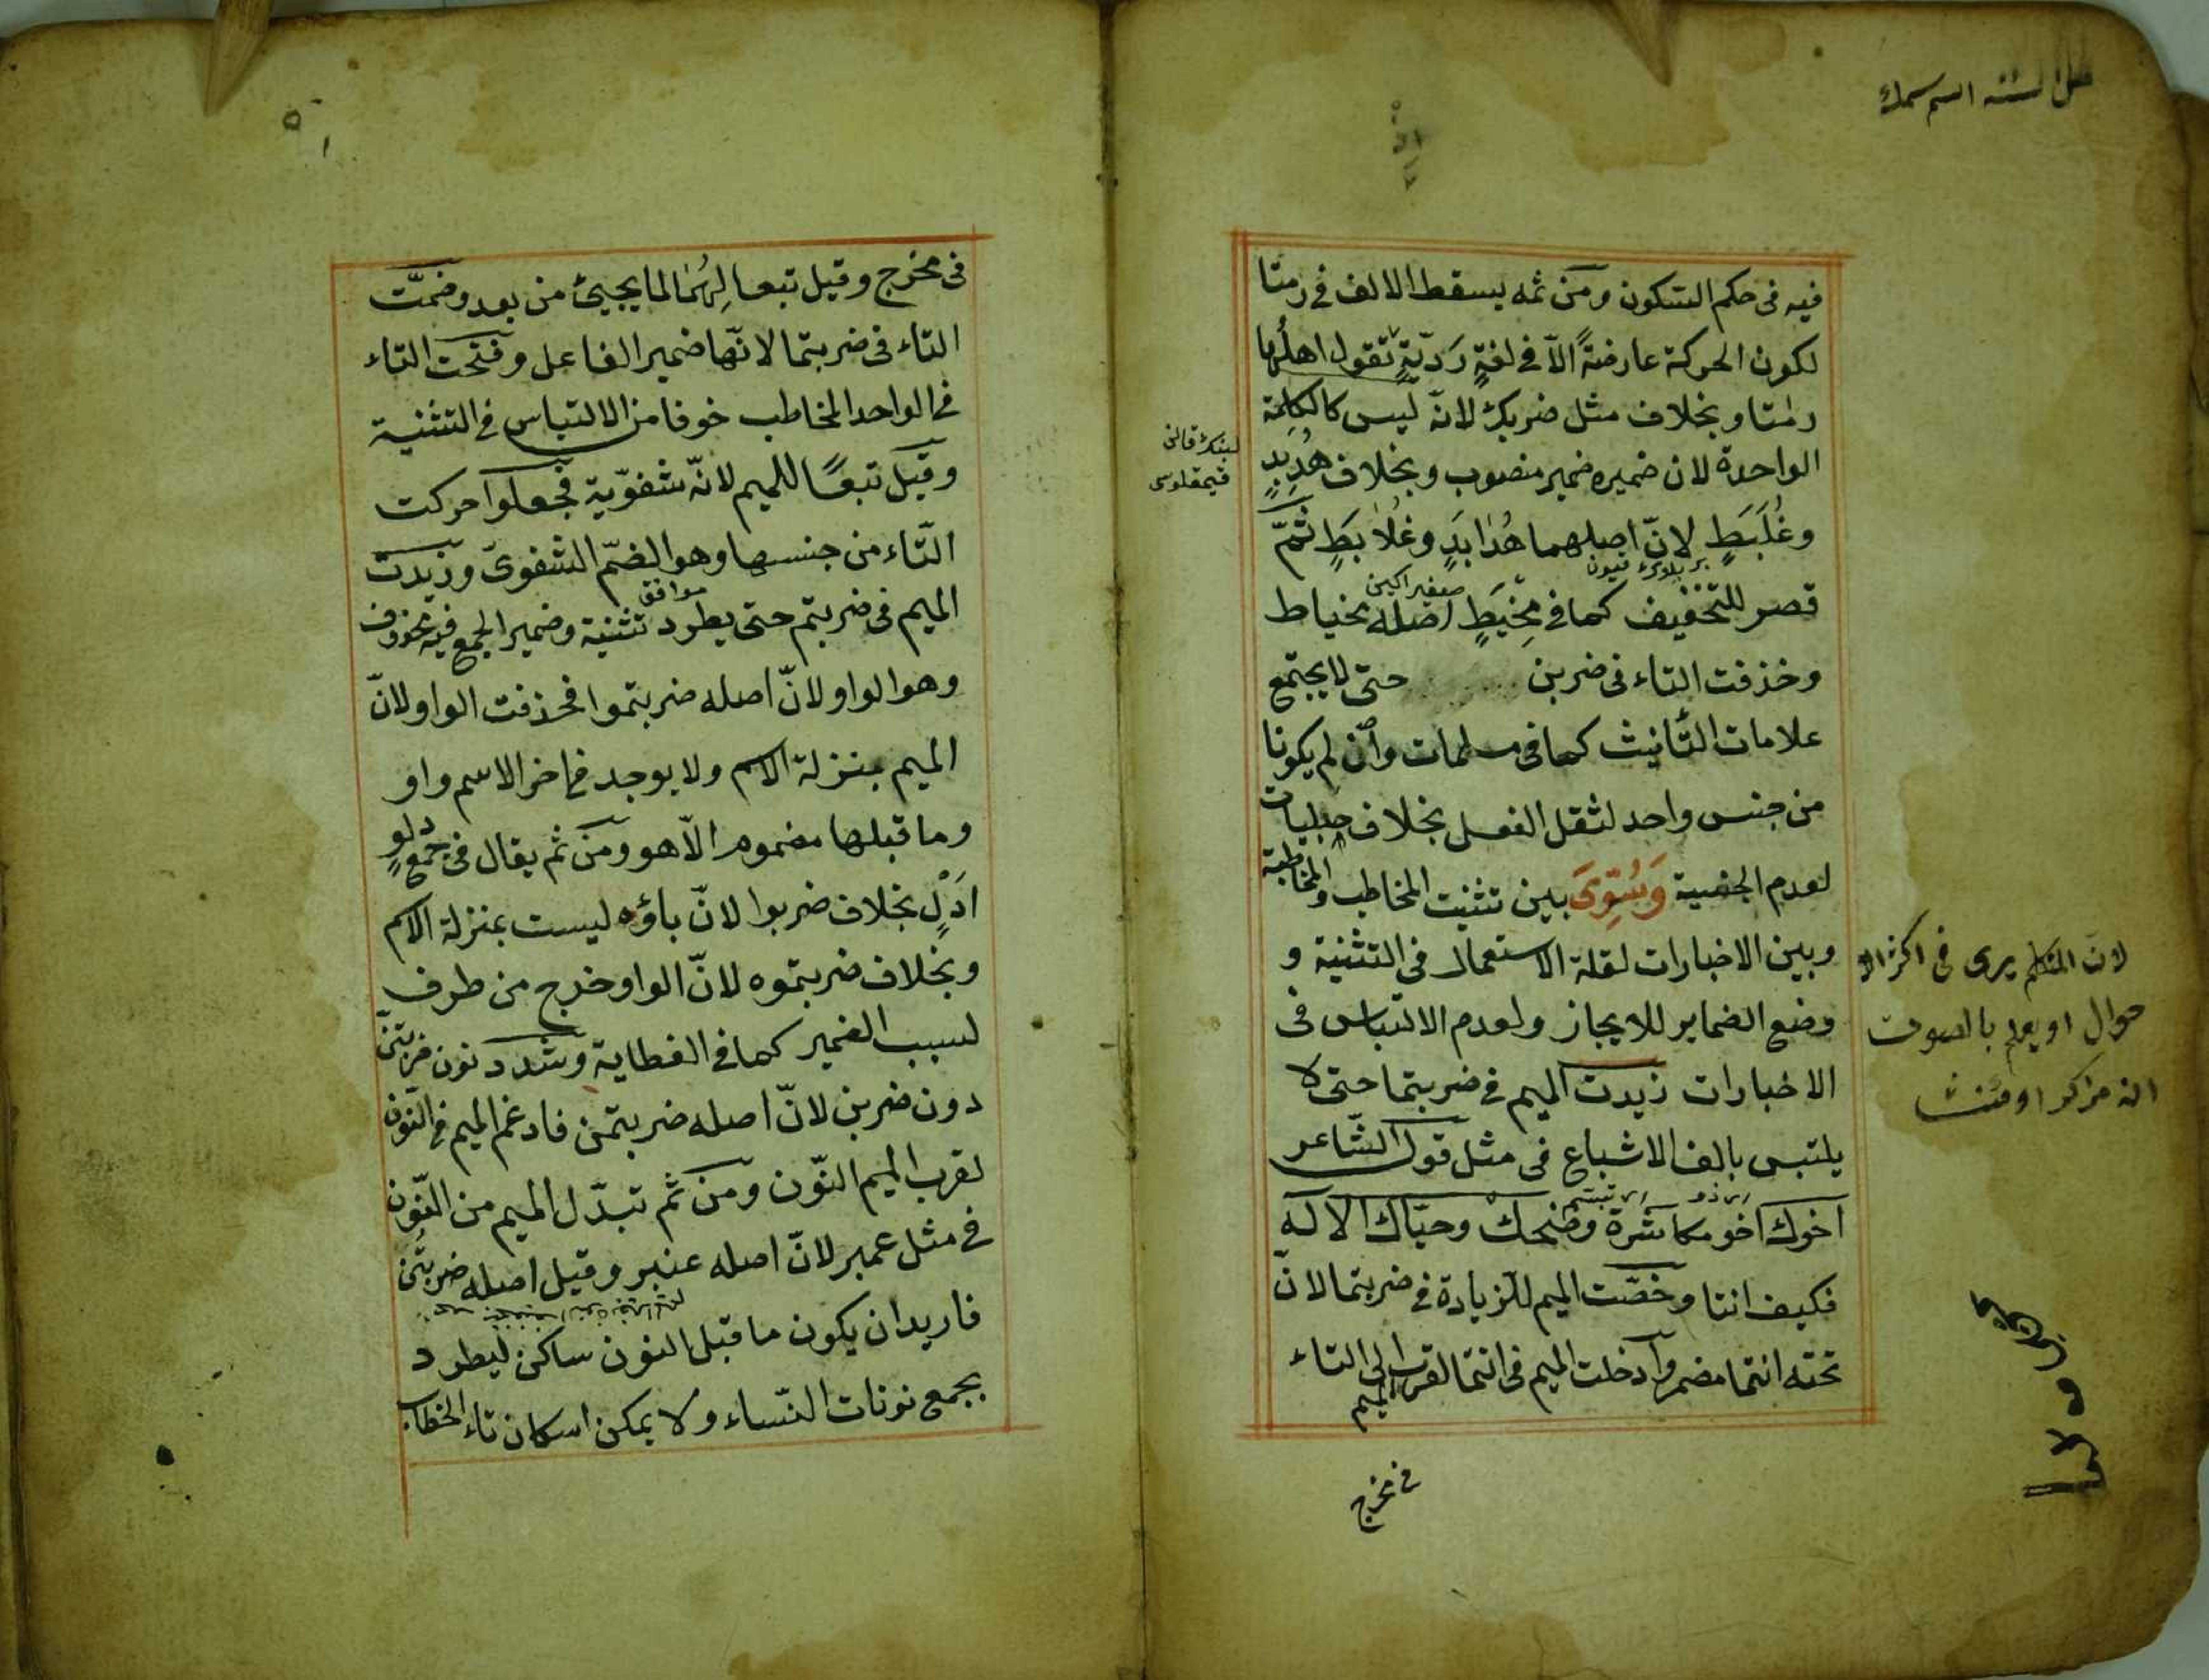 فيه فى حكم السكون ومن ثمه يسقط الالف فى رمتا
لكون الحركة عارضةً الاّ فى لغةٍ رَدّيّةٍ تقول اهلُها
رمٰتا وبخلاف مثل ضربك لانّه ليس كالكلمة
الواحدة لان ضميره ضمير منصوب وبخلاف هُدَبِدٍ
وغُلَبَطٍ لانّ اصلهما هُدٰابَدٍ وغُلاٰبَطٍ ثمّ
قصر للتخفيف كما فى مِخْيَطٍ اصله مخياط
وخذفت التاء فى ضربن حتى لا يجتمع
علامات التّأنيث كما فى مسلمات وان لم يكونا
من جنس واحد لثقل الفعل بخلاف حبليات
لعدم الجنسية وَسُوِّىَ بين تثنيت المخاطب والمخاطبة
وبين الاخبارات لقلة الاستعمال فى التثنية و
وضع الضماير للايجاز ولعدم الالتباس فى
الاخبارات زيدت الميم فى ضربتما حتى لا
يلتبس بالف الاشباع فى مثل قول الشّاعر
اخوك اخو مكاشرة وضحك وحيّاك الاله
فكيف انتا وخصّت الميم للزيادة فى ضربتما لانّ
تحته انتما مضمر وادخلت الميم فى انتما لقرب الميم الى التاء
فى مخرج
لانّ المتكلم يرى فى اكثر الا
حوال او يعلم بالصوت
انه مزكر او مئنث
فى مخرج وقيل تبعا لِهُمٰا لما يجيئ من بعد وضمّت
التاء فى ضربتما لانّها ضمير الفاعل وفتحت التاء
فى الواحد المخاطب خوفا من الالتباس فى التثنية
وقيل تبعًا للميم لانّه شفوّية فجعلوا حركت
التّاء من جنسها وهو الضمّ الشفوىّ وزيدت
الميم فى ضربتم حتى يطرد تثنية وضمير الجمع فيه محذوف
موافق
وهو الواو لانّ اصله ضربتموا فحذفت الواو لانّ
الميم بمنزلة الاسم ولا يوجد فى اخر الاسم واو
وما قبلها مضموم الاّ هو ومن ثم يقال فى جمع دلوٍ
ادَلٍ بخلاف ضربوا لانّ باؤه ليست بمنزلة الاسم
وبخلاف ضربتموه لانّ الواو خرج من طرف
لسبب الضمير كما فى العظاية وشدد نون ضربتنّ
دون ضربن لانّ اصله ضربتمن فادغم الميم فى النّون
لقرب الميم النّون ومن ثم تبدّل الميم من النّون
فى مثل عمبر لانّ اصله عنبر وقيل اصله ضربتُن
فاريد ان يكون ما قبل النون ساكن ليطرد
بجمع نونات النّساء ولا يمكن اسكان تاء الخطاب